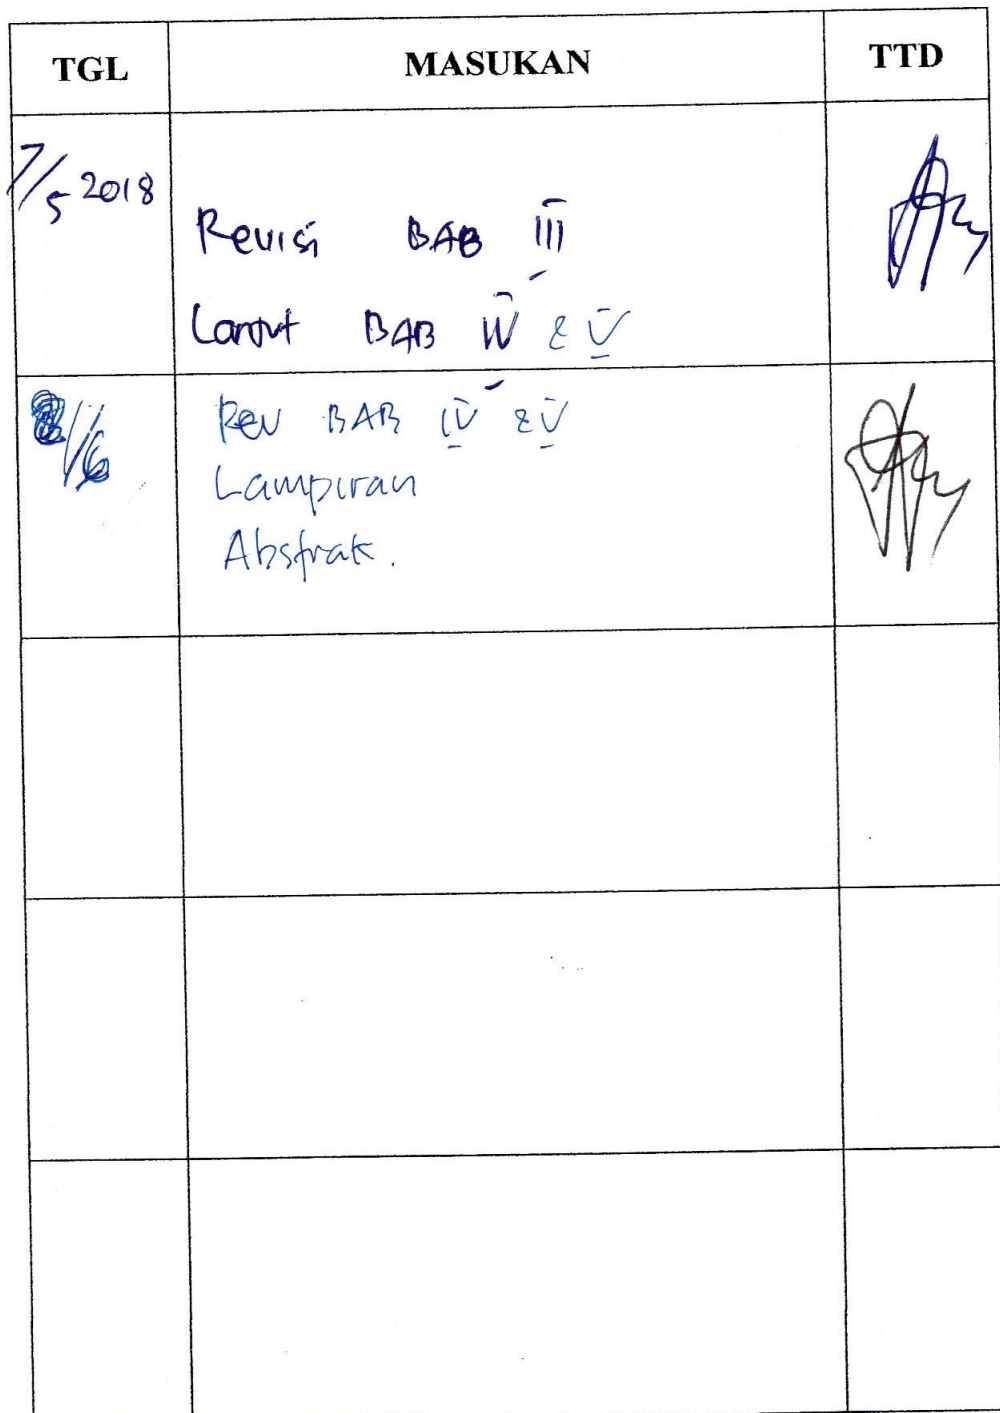 TGL MASUKAN TTD
7/5 2018
Revisi BAB III
Lanjut BAB IV & V
Rev BAB IV & V
Lampiran
Abstrak.